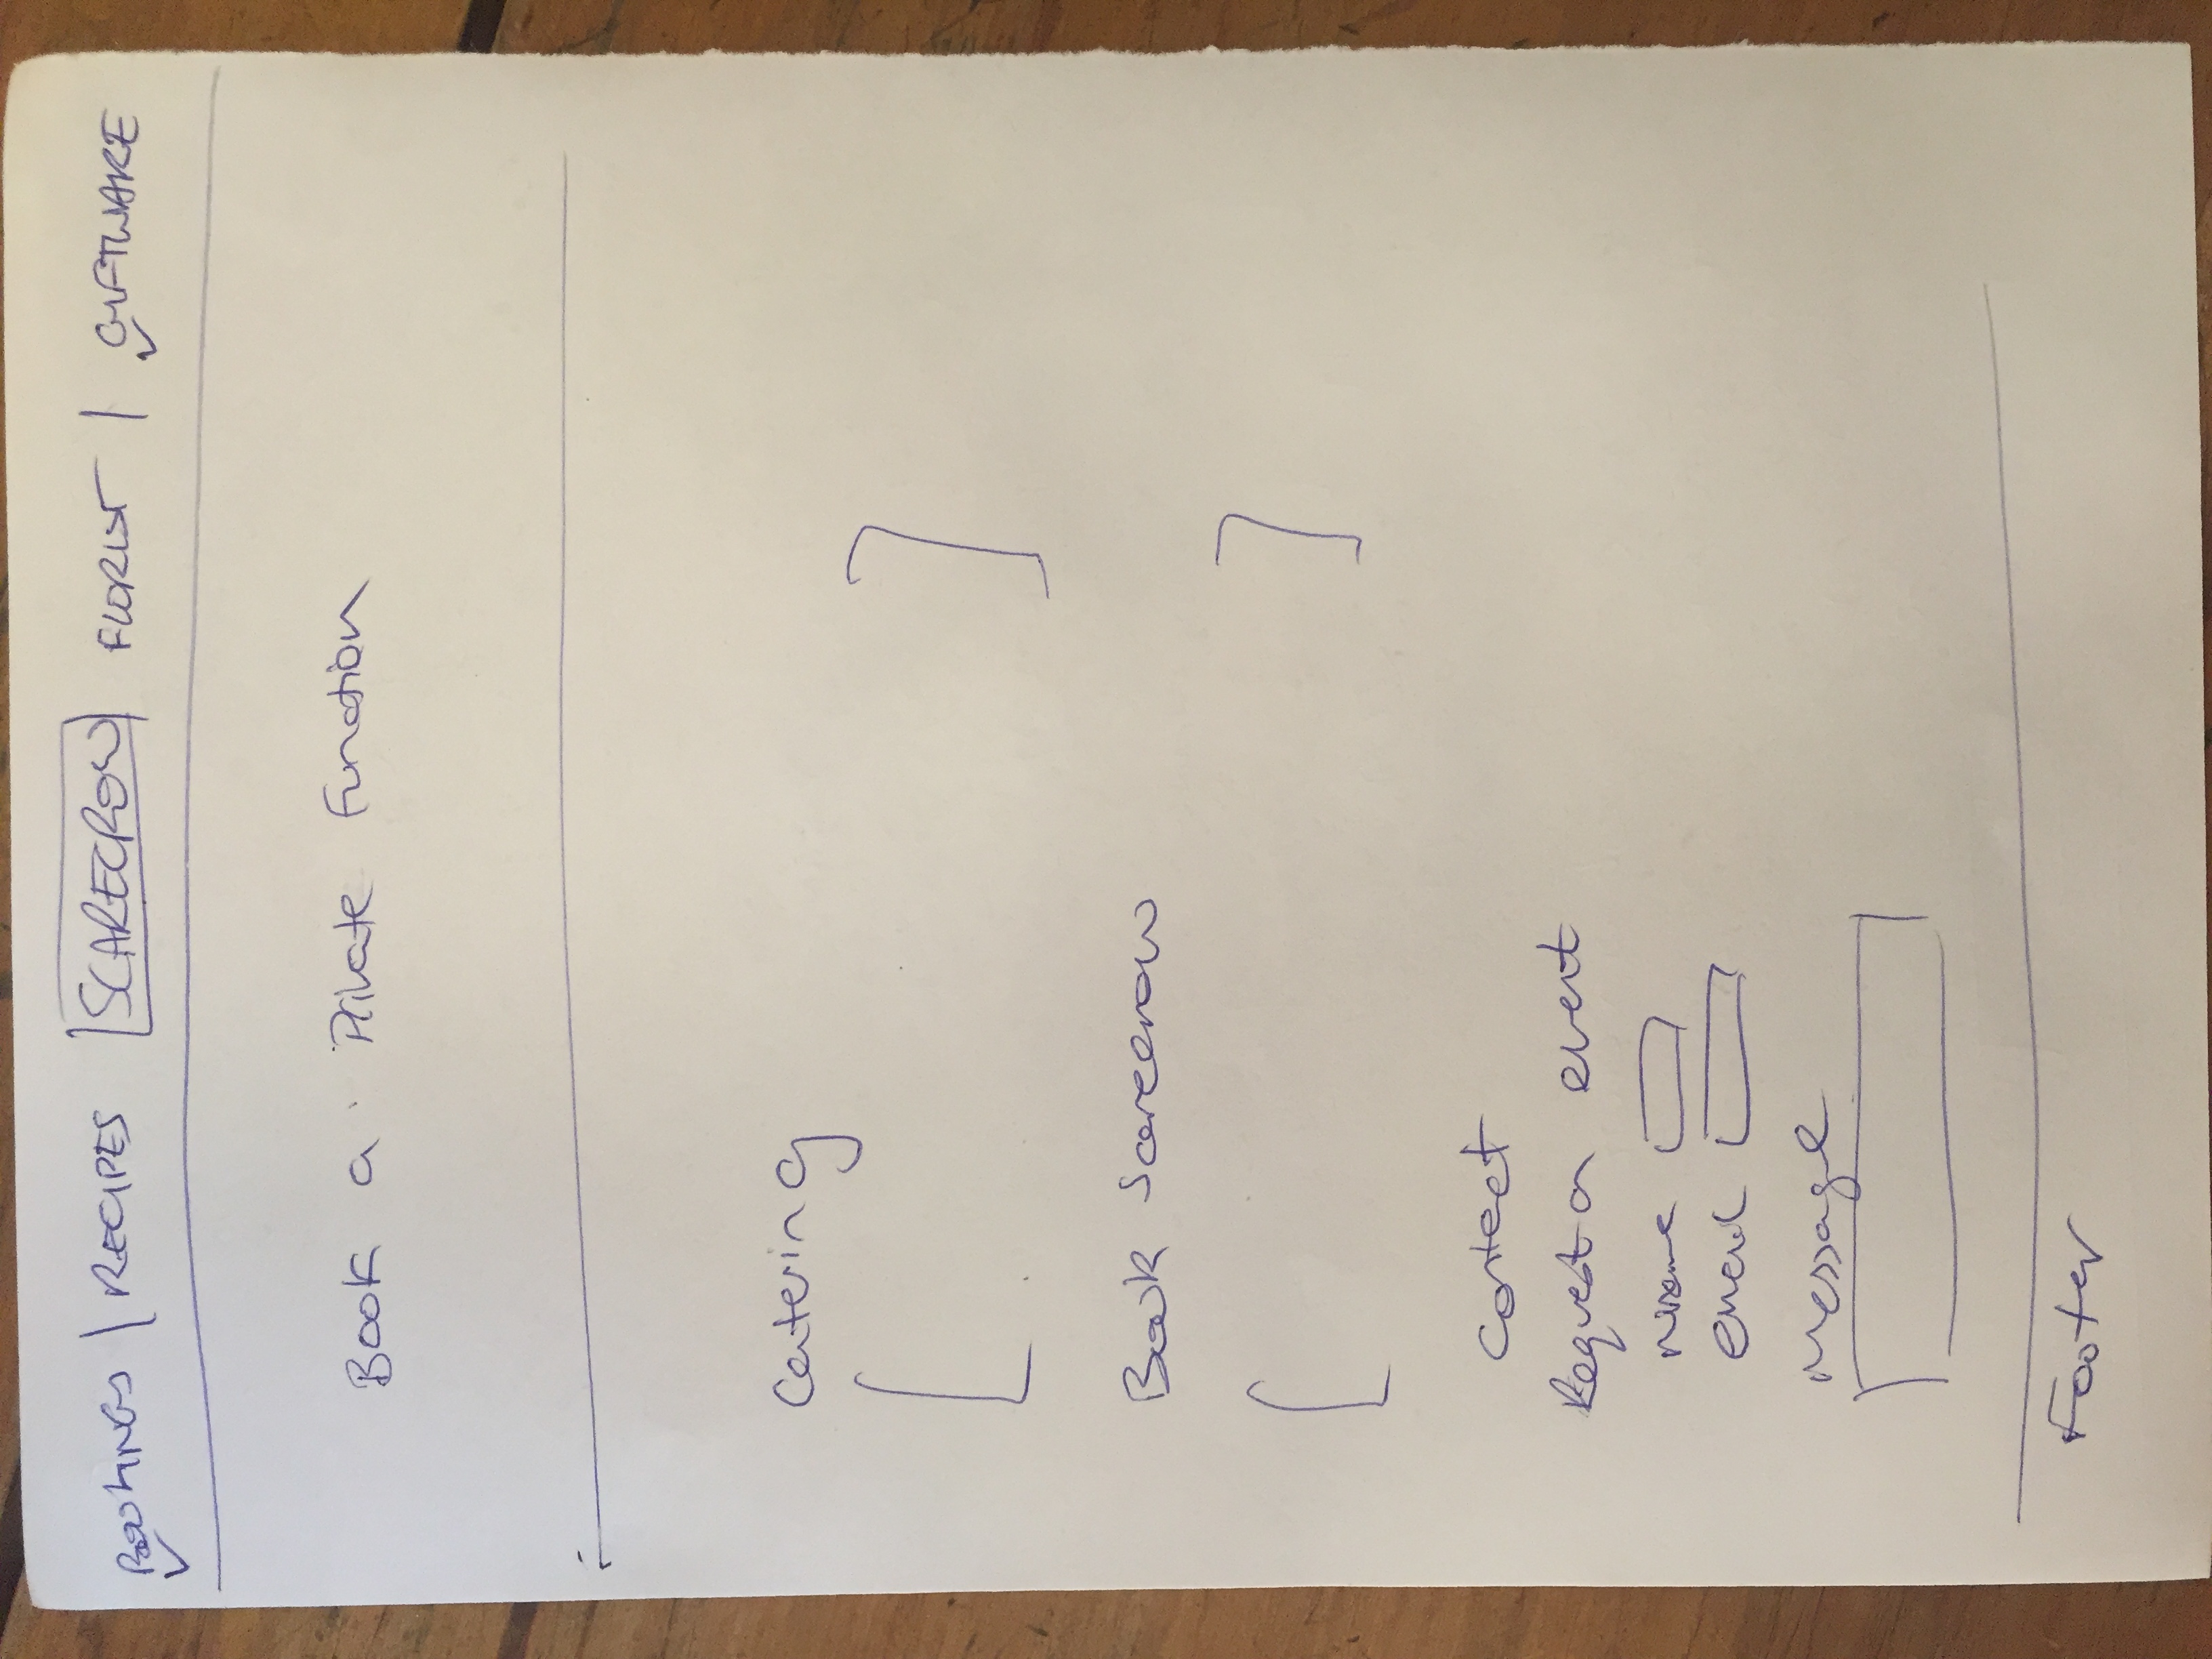 BOOKINGS | RECIPES SCARECROW FLORIST | GIFTWARE
Book a Private Function
Catering
Book Scarecrow
Contact
Request a event
Name
email
Message
Footer